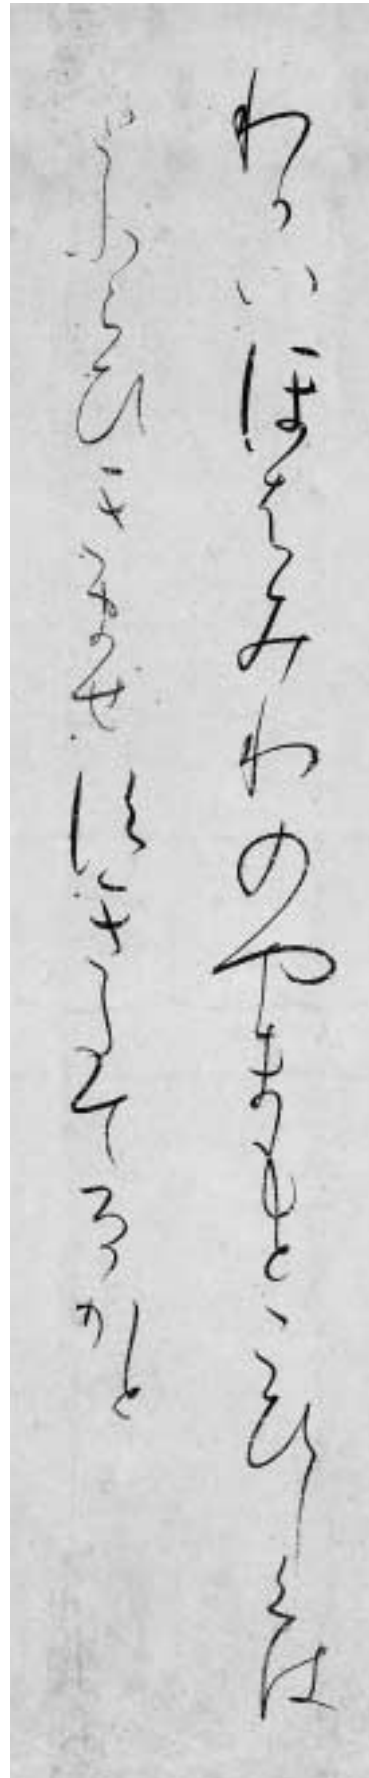 わかいほはみわのやまもとこひしくは
とふらひきませすきたてるかと